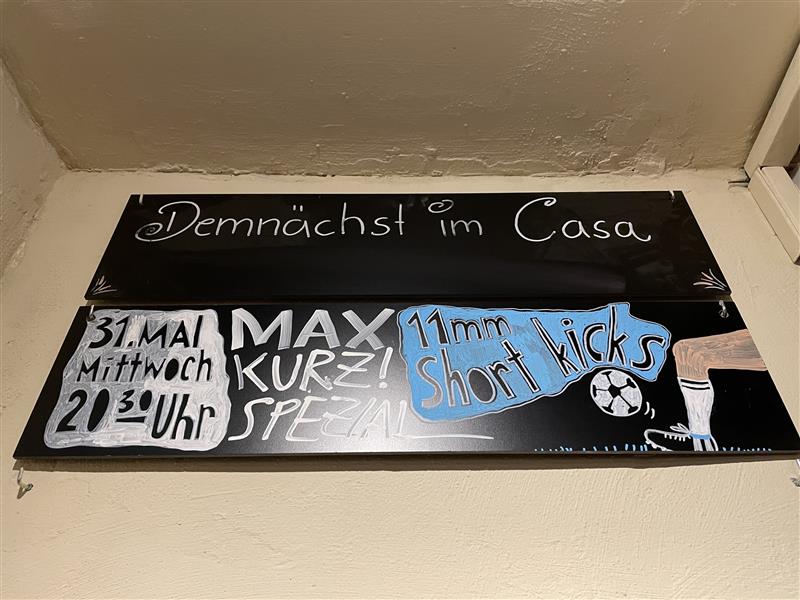 Demnächst im Casa
31. MAI
Mittwoch
20 30 Uhr
MAX
KURZ!
SPEZIAL
11mm
Short kicks